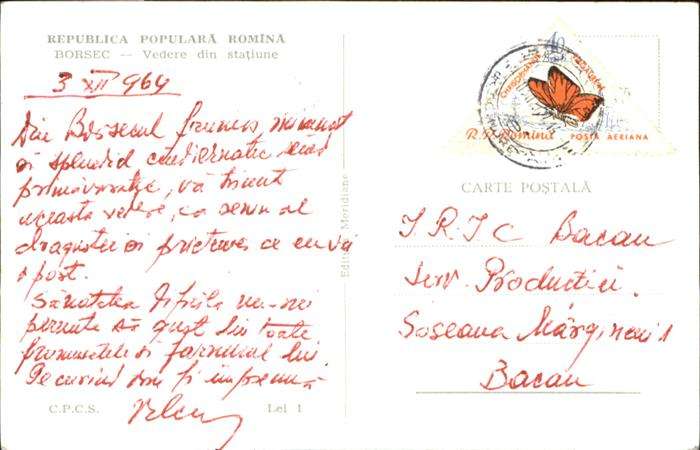 REPUBLICA POPULARĂ ROMÎNĂ
BORSEC — Vedere din stațiune
3 XII 964
Din Borsecul frumos, minunat
și splendid
primăvăratic, vă trimit
aceasta vedere, ca semn al
dragostei și prieteniei ce
a post.
Sănătatea
permite să gust din toate
frumusețile și farmecul lui.
Pe curînd vom fi împreună
C.P.C.S.
Lei 1
Editura Meridiane
40
R.P. Romina
POSTA AERIANA
CARTE POȘTALĂ
I.R.I.C Bacau
Serv. Productiei
Soseaua Mărgineni 1
Bacau